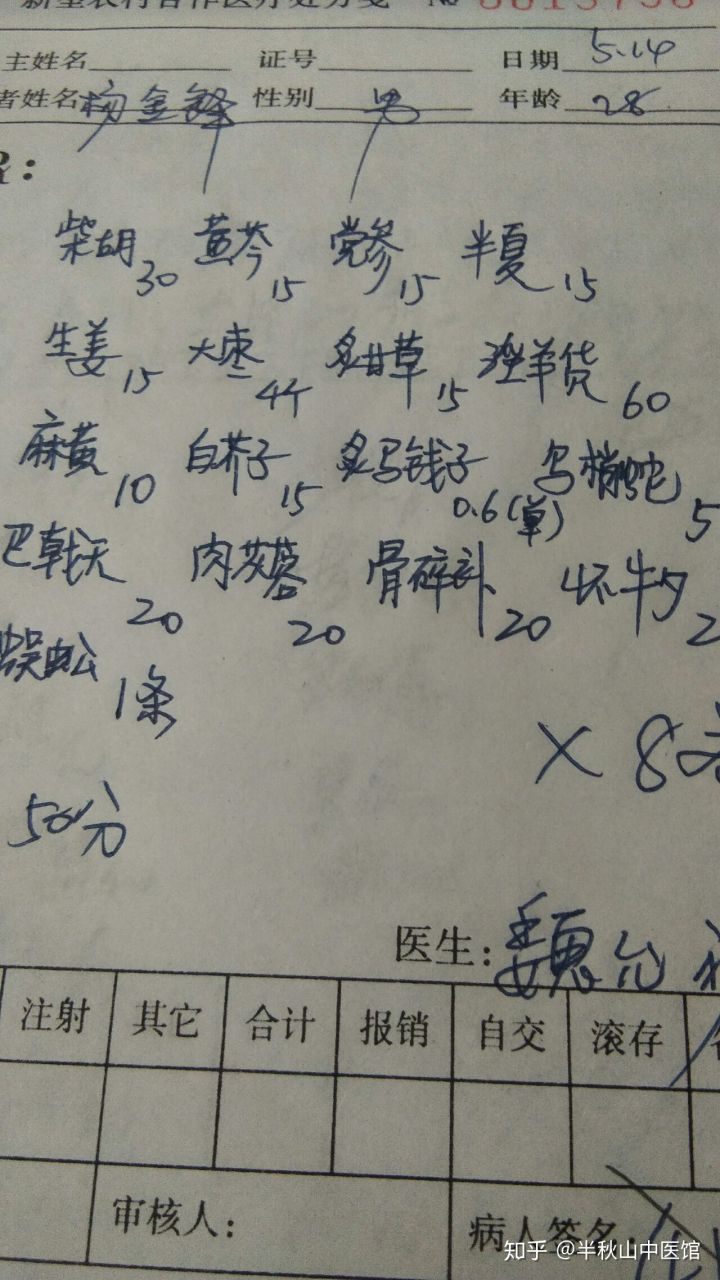 新型农村合作医疗处方笺 №0015756
主姓名 证号 日期 5.14
者姓名 杨金锋 性别 男 年龄 28
柴胡30 黄芩15 党参15 半夏15
生姜15 大枣4个 炙甘草15 淫羊藿60
麻黄10 白芥子15 炙马钱子0.6(单) 乌梢蛇5
巴戟天20 肉苁蓉20 骨碎补20 怀牛夕2
蜈蚣1条
×8
50分
医生:魏
注射 其它 合计 报销 自交 滚存
审核人: 病人签名:
知乎 @半秋山中医馆